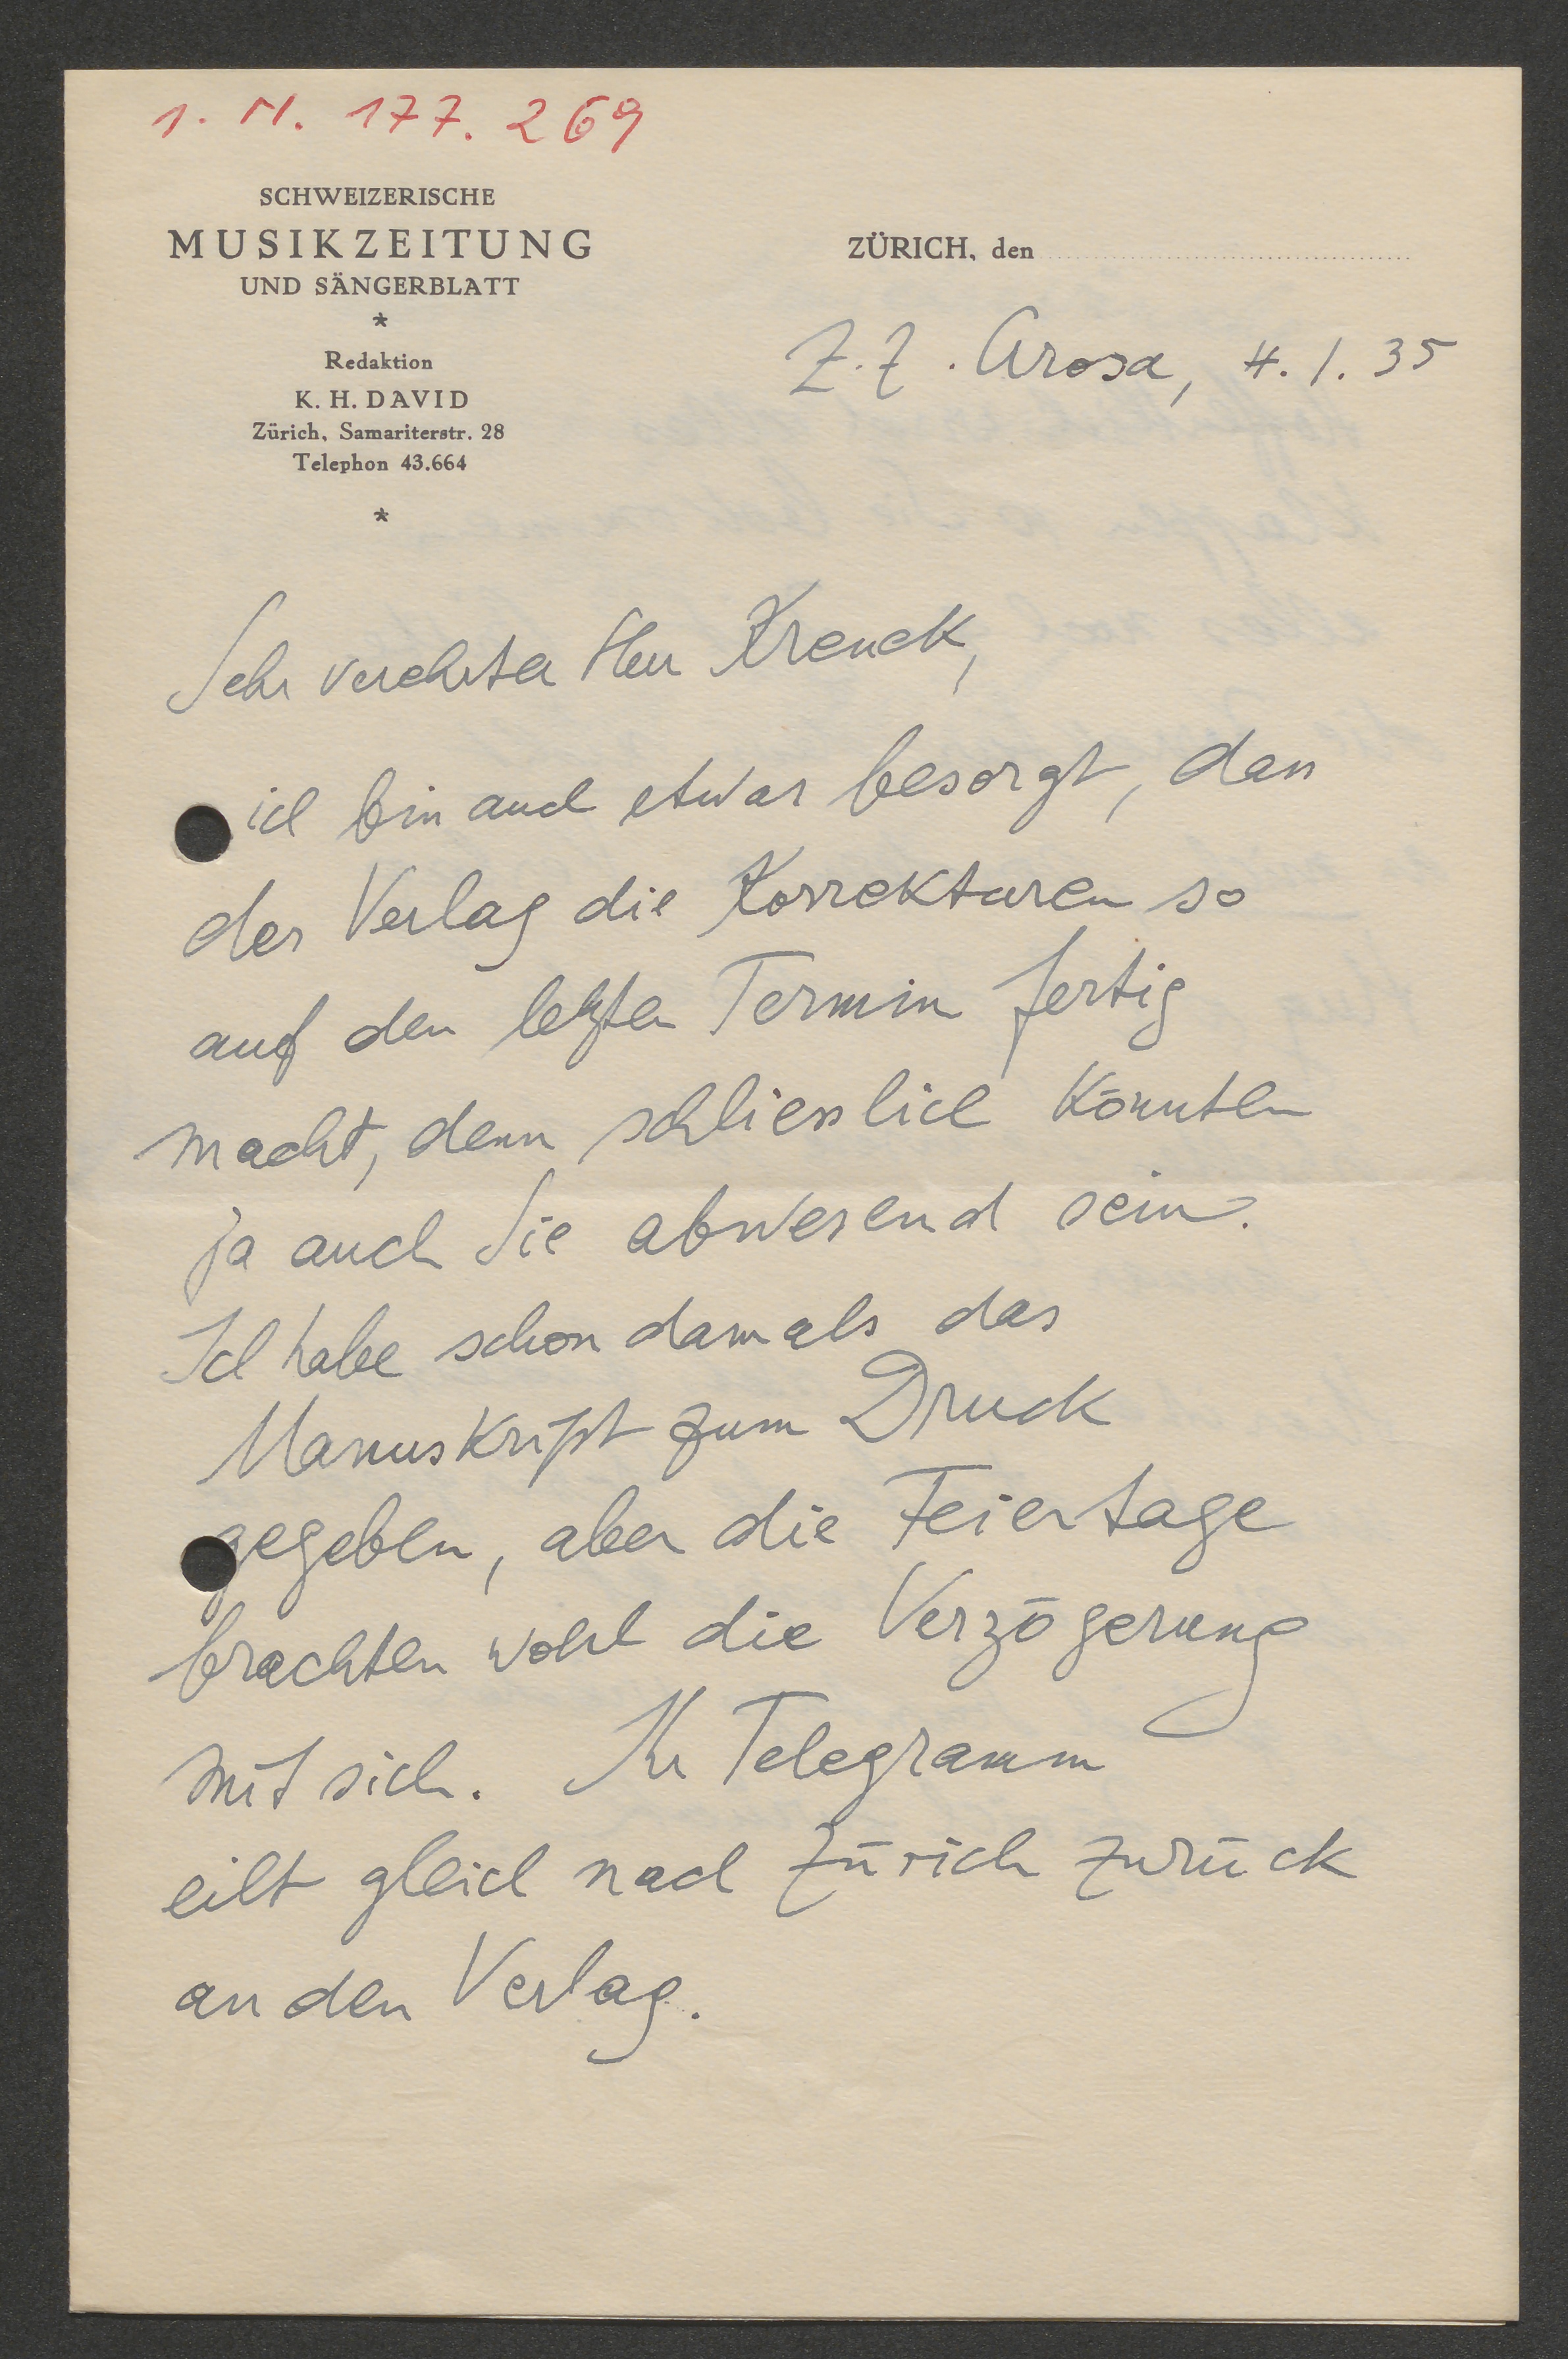 1. N. 177.269
SCHWEIZERISCHE
MUSIKZEITUNG
UND SÄNGERBLATT
*
Redaktion
K. H. DAVID
Zürich, Samariterstr. 28
Telephon 43.664
*
ZÜRICH, den
z. Z. Arosa, 4. 1. 35
Sehr verehrter Herr Krenek,
ich bin auch etwas besorgt, dass
der Verlag die Korrekturen so
auf den letzten Termin fertig
macht, denn schliesslich könnten
ja auch Sie abwesend sein.
Ich habe schon damals das
Manuskript zum Druck
gegeben, aber die Feiertage
brachten wohl die Verzögerung
mit sich. Ihr Telegramm
eilt gleich nach Zürich zurück
an den Verlag.